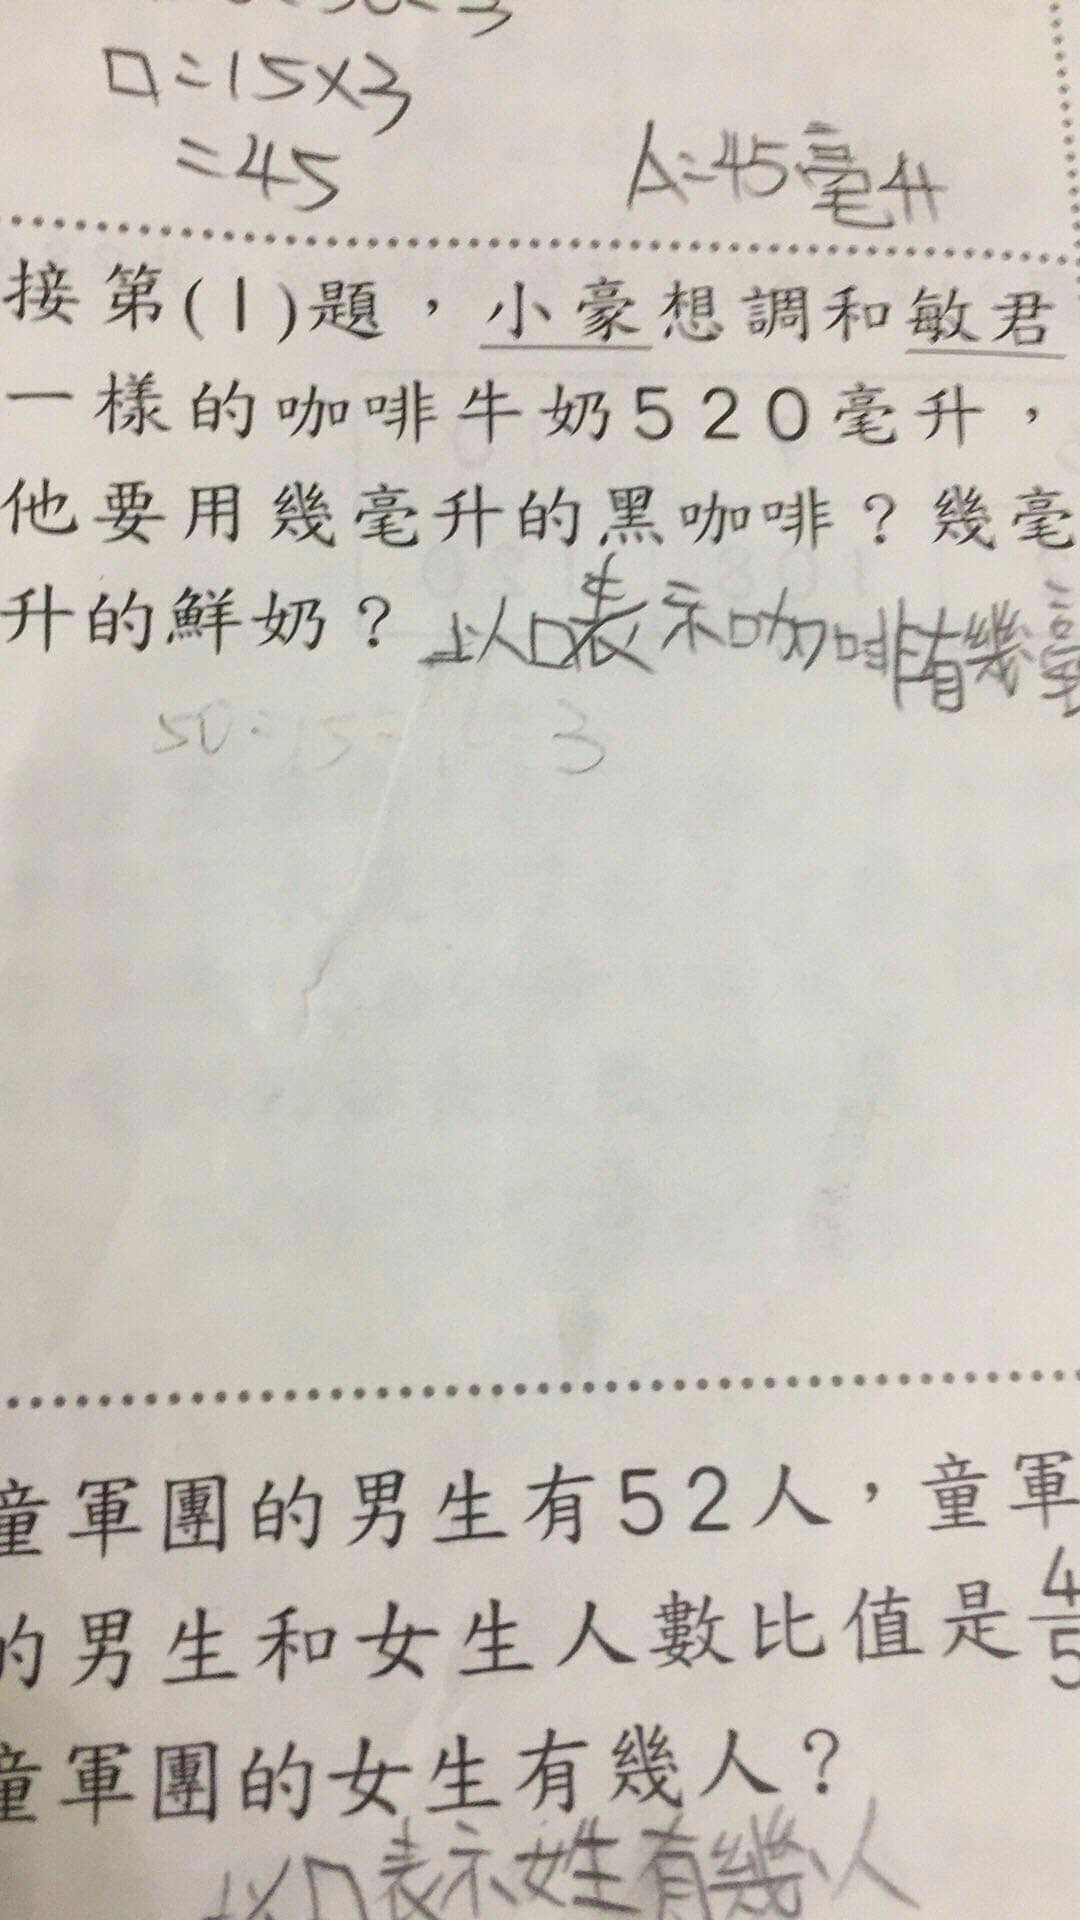 □=15×3
=45
A=45毫升
接第(1)題，小豪想調和敏君
一樣的咖啡牛奶520毫升，
他要用幾毫升的黑咖啡？幾毫
升的鮮奶？
以□表示咖啡有幾毫
50:15=
3
童軍團的男生有52人，童軍
的男生和女生人數比值是4/5
童軍團的女生有幾人？
以□表示女生有幾人